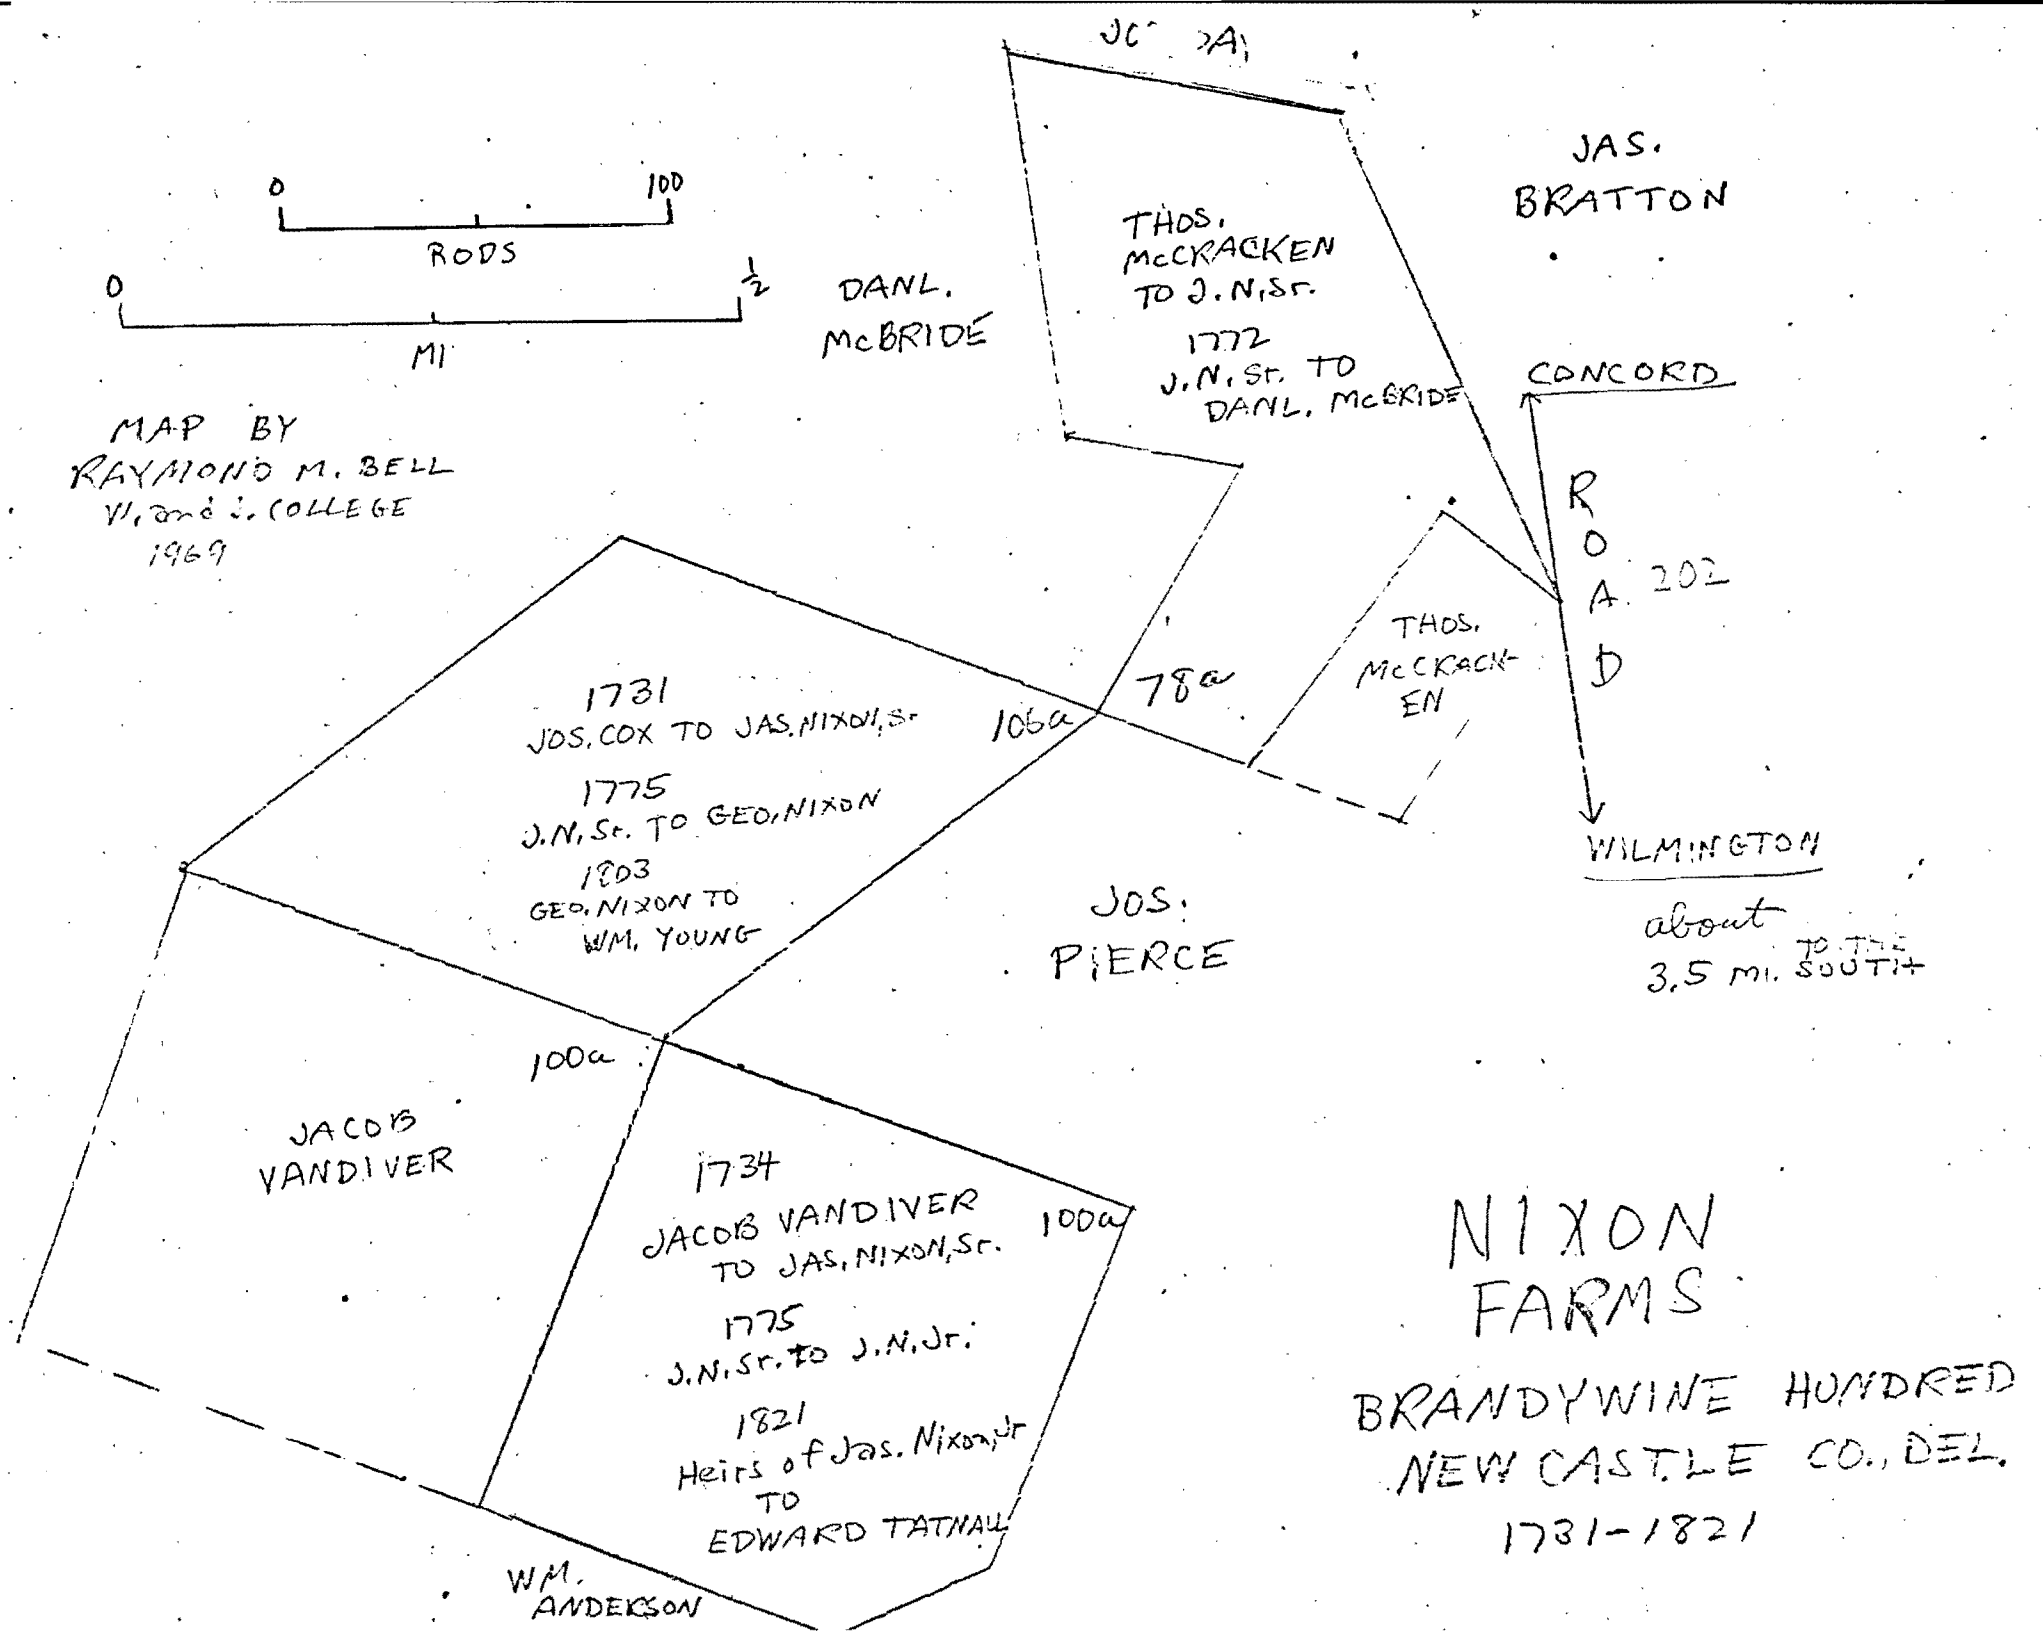 0 100
RODS
0 1/2
MI
MAP BY
RAYMOND M. BELL
W. and J. COLLEGE
1969
DANL.
McBRIDE
THOS.
McCRACKEN
TO J.N,Sr.
1772
J.N, Sr. TO
DANL. McBRIDE
JAS.
BRATTON
CONCORD
ROAD
202
WILMINGTON
about
3.5 MI. TO THE
SOUTH
THOS.
McCRACK-
EN
78a
106a
1731
JOS. COX TO JAS. NIXON, Sr
1775
J.N, Sr. TO GEO. NIXON
1803
GEO. NIXON TO
WM. YOUNG
JOS.
PIERCE
100a
JACOB
VANDIVER
1734
JACOB VANDIVER
TO JAS. NIXON, Sr.
100a
1775
J.N. Sr. to J.N. Jr.
1821
Heirs of Jas. Nixon, Jr
TO
EDWARD TATNALL
WM.
ANDERSON
NIXON
FARMS
BRANDYWINE HUNDRED
NEW CASTLE CO., DEL.
1731-1821